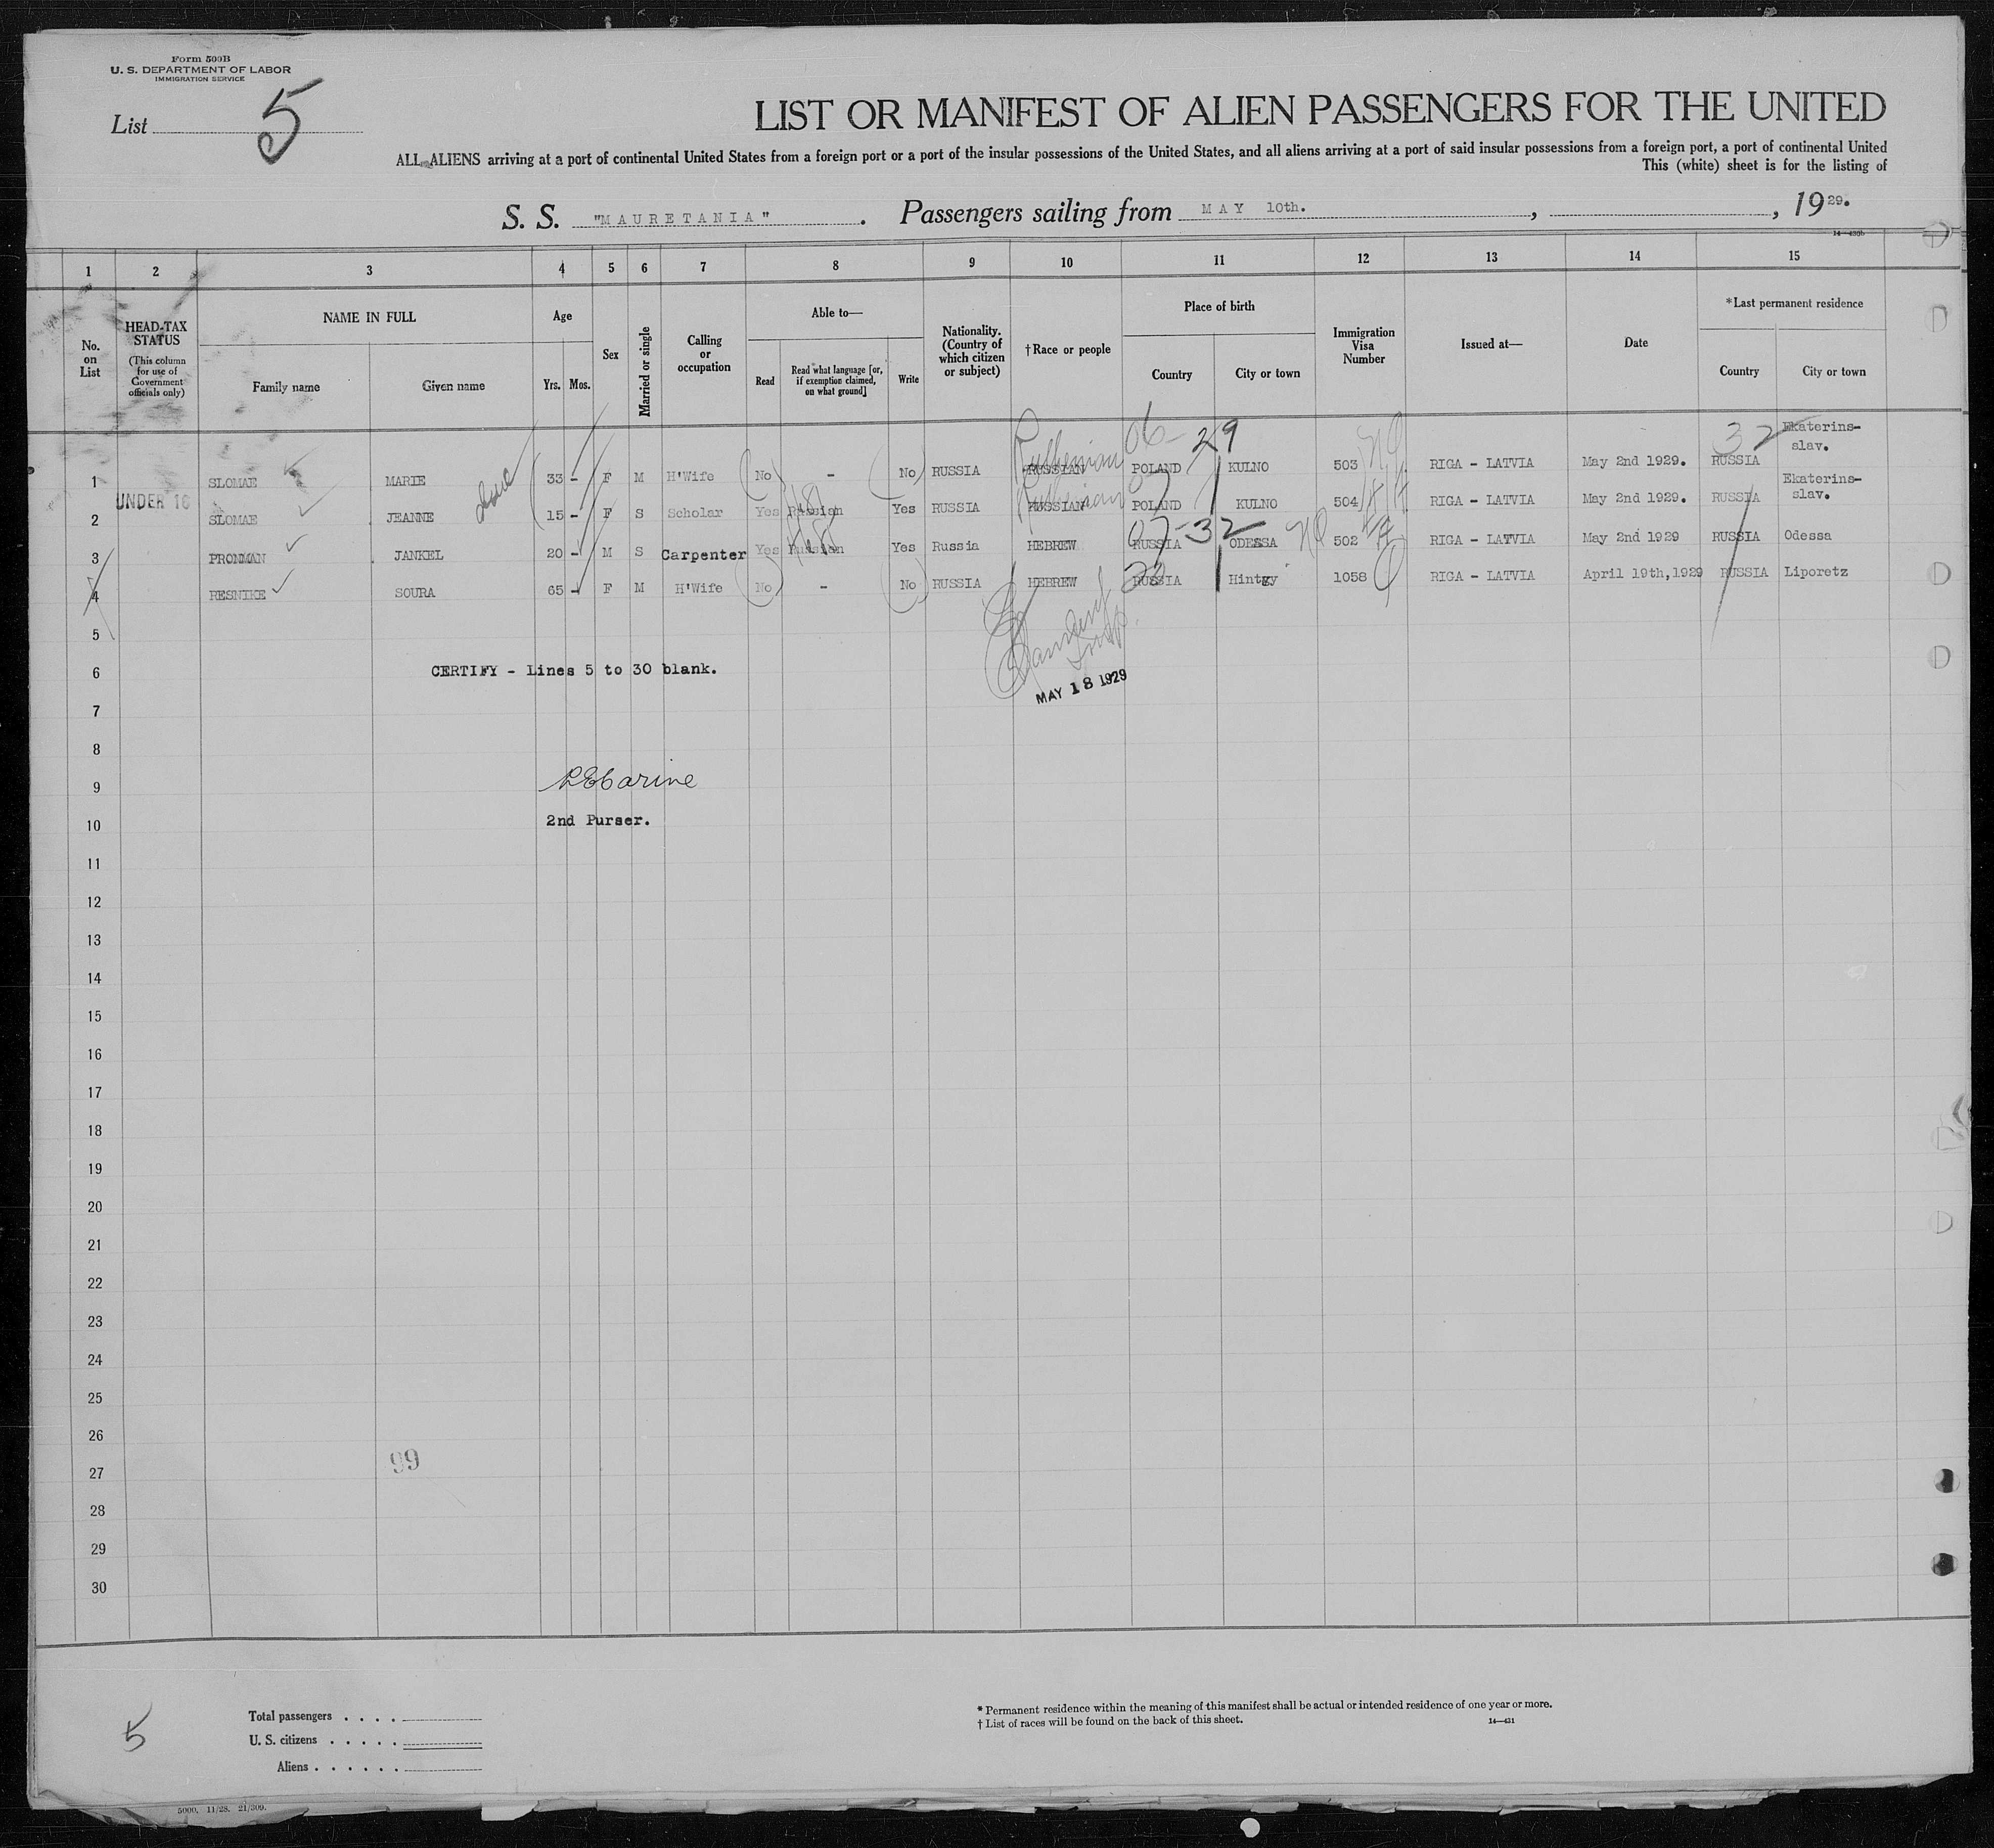 Form 500B
U. S. DEPARTMENT OF LABOR
IMMIGRATION SERVICE
List 5
LIST OR MANIFEST OF ALIEN PASSENGERS FOR THE UNITED
ALL ALIENS arriving at a port of continental United States from a foreign port or a port of the insular possessions of the United States, and all aliens arriving at a port of said insular possessions from a foreign port, a port of continental United
This (white) sheet is for the listing of
S. S. "MAURETANIA". Passengers sailing from MAY 10th. , , 1929.
14—430b
1 2 3 4 5 6 7 8 9 10 11 12 13 14 15
No. on List
HEAD-TAX STATUS (This column for use of Government officials only)
NAME IN FULL
Family name
Given name
Age
Yrs. Mos.
Sex
Married or single
Calling or occupation
Able to—
Read
Read what language [or, if exemption claimed, on what ground]
Write
Nationality. (Country of which citizen or subject)
†Race or people
Place of birth
Country
City or town
Immigration Visa Number
Issued at—
Date
*Last permanent residence
Country
City or town
06- 29
32
1 SLOMAE MARIE 33 - F M H'Wife No - No RUSSIA RUSSIAN Ruthenian POLAND KULNO 503 RIGA - LATVIA May 2nd 1929. RUSSIA Ekaterins-
slav.
UNDER 16
2 SLOMAE JEANNE 15 - F S Scholar Yes Russian Yes RUSSIA RUSSIAN Ruthenian POLAND KULNO 504 RIGA - LATVIA May 2nd 1929. RUSSIA Ekaterins-
slav.
07-32
3 PRONMAN JANKEL 20 - M S Carpenter Yes Russian Yes Russia HEBREW RUSSIA ODESSA 502 RIGA - LATVIA May 2nd 1929 RUSSIA Odessa
4 RESNIKE SOURA 65 - F M H'Wife No - No RUSSIA HEBREW RUSSIA Hintzy 1058 RIGA - LATVIA April 19th,1929 RUSSIA Liporetz
5
6 CERTIFY - Lines 5 to 30 blank.
MAY 18 1929
7
8
9
10 2nd Purser.
11
12
13
14
15
16
17
18
19
20
21
22
23
24
25
26
99
27
28
29
30
5
Total passengers . . . .
U. S. citizens . . . . .
Aliens . . . . . .
* Permanent residence within the meaning of this manifest shall be actual or intended residence of one year or more.
† List of races will be found on the back of this sheet.
14—431
5000. 11/28. 21/309.